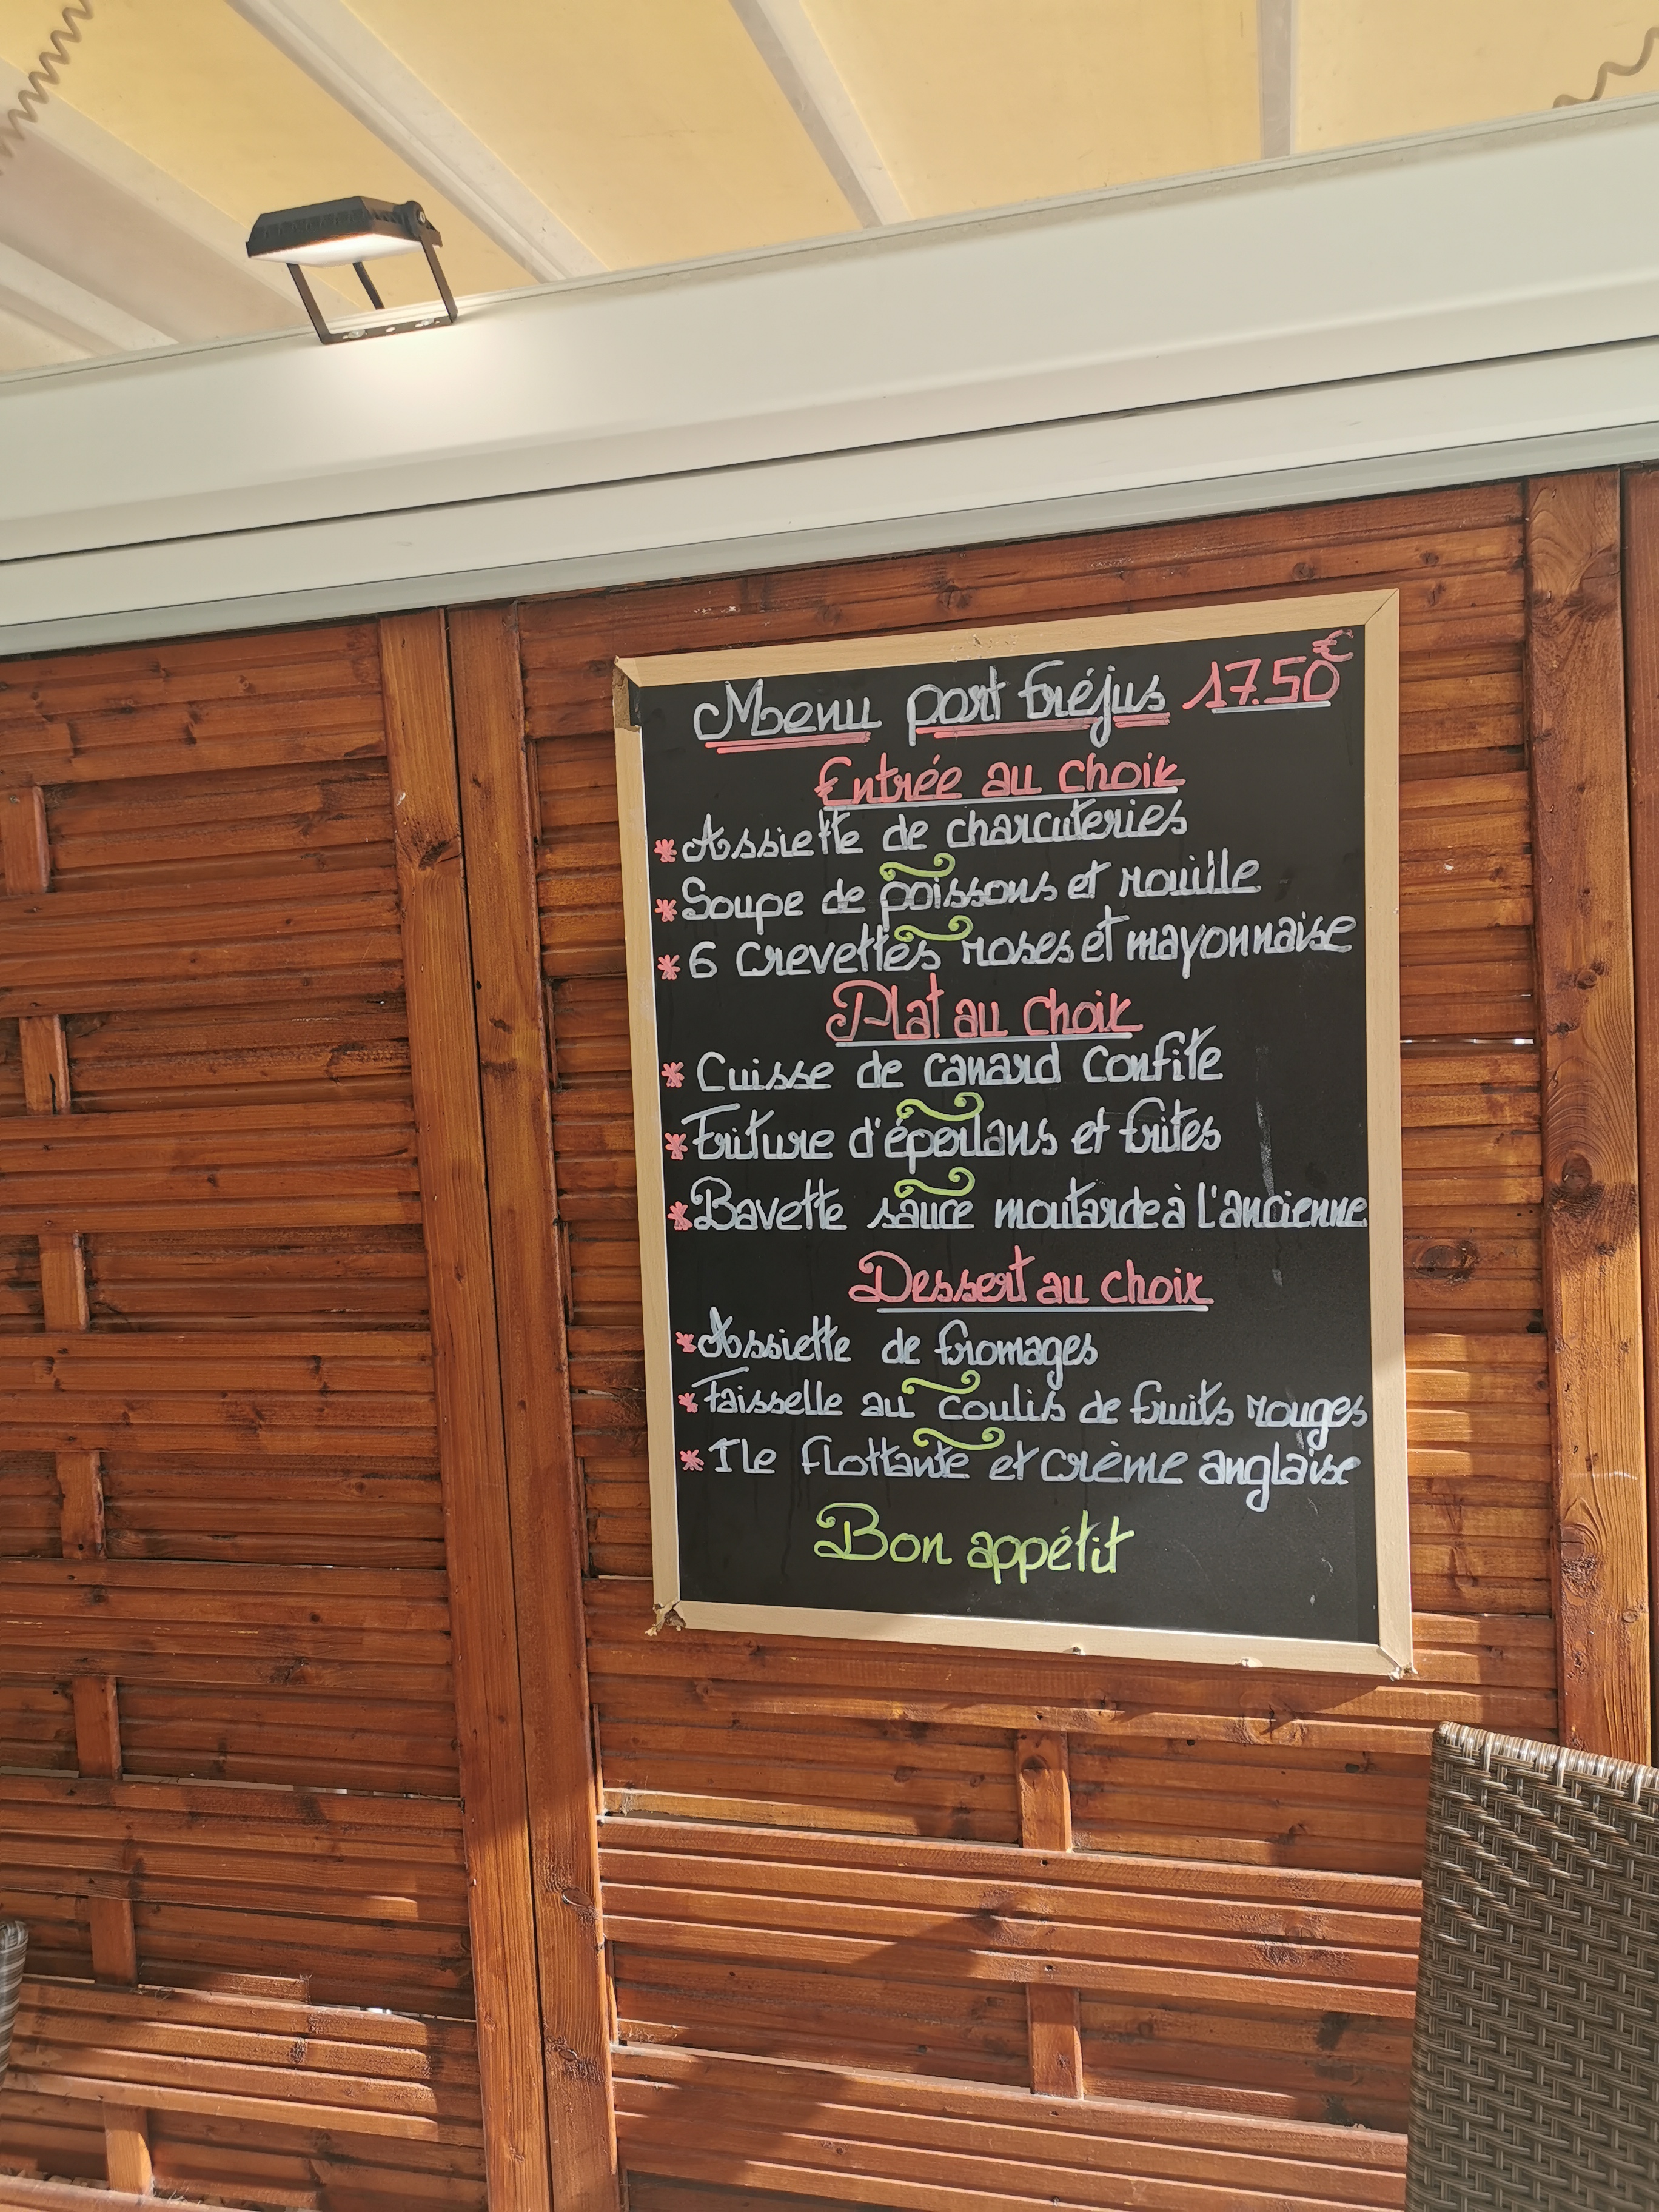 Menu port Fréjus 17.50€
Entrée au choix
* Assiette de charcuteries
* Soupe de poissons et rouille
* 6 Crevettes roses et mayonnaise
Plat au choix
* Cuisse de canard confite
* Friture d'éperlans et frites
* Bavette sauce moutarde à l'ancienne
Dessert au choix
* Assiette de fromages
* Faisselle au coulis de fruits rouges
* Ile flottante et crème anglaise
Bon appétit